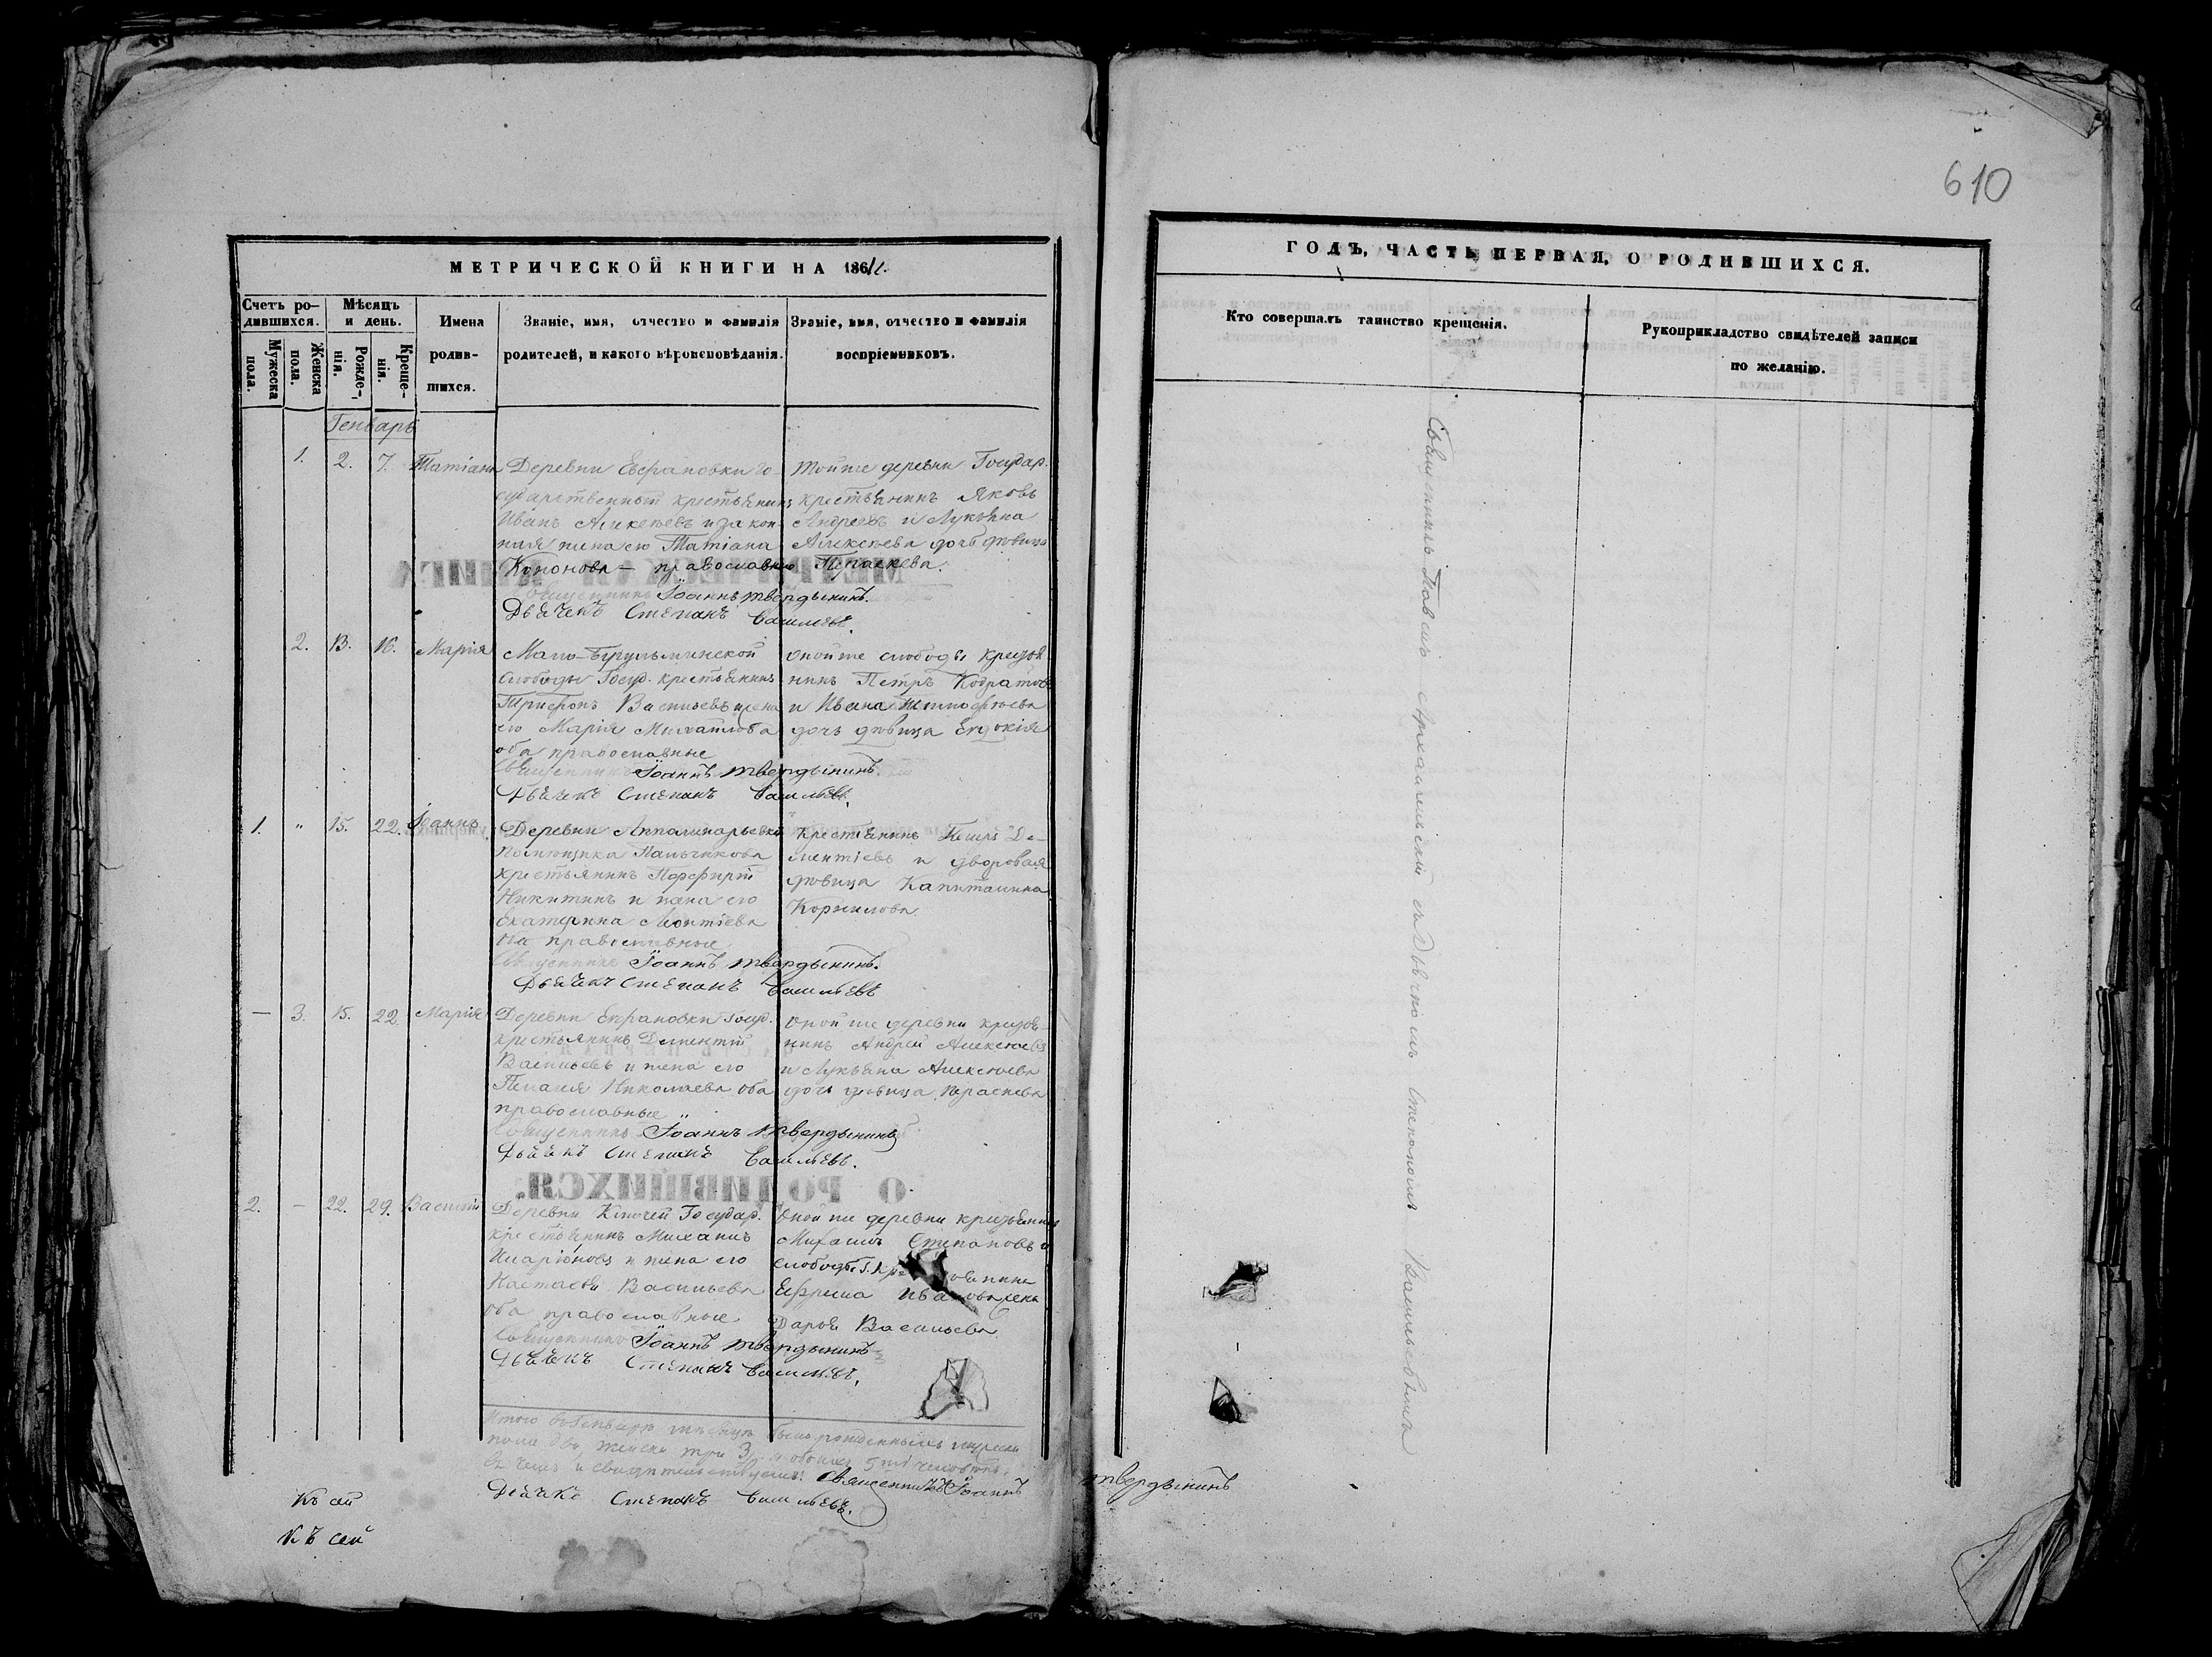 610
МЕТРИЧЕСКОЙ КНИГИ НА 1861
Счетъ ро-
дившихся.
Мужеска
пола.
Женска
пола.
Мѣсяцъ
и день.
Рожде-
нія.
Креще-
нія.
Имена
родив-
шихся.
Званіе, имя, отчество и фамилія
родителей, и какого вѣроисповѣданія.
Званіе, имя, отчество и фамилія
воспріемниковъ.
Генварь
1. 2. 7. Татіана
Деревни го-
сударственный крестьянинъ
Иванъ Алексѣевъ и закон-
ная жена его Татіана
Кононова – православные
Тойже деревни Государ.
крестьянинъ Яковъ
Андреевъ и Лукьяна
Алексѣева дочь дѣвица
Параскева.
Священникъ Іоаннъ Твердынинъ.
Дьячекъ Степанъ Васильевъ.
2. 13. 16. Марія
Мало-Бугульминской
слободы Госуд. крестьянинъ
Трифонъ Васильевъ и жена
его Марія
оба православные
Онойже слободы крестья-
нинъ Петръ
и Ивана Тимофѣева
дочь дѣвица Евдокія
Священникъ Іоаннъ Твердынинъ.
Дьячекъ Степанъ Васильевъ.
1. „ 15. 22. Іоаннъ
Деревни Аполинарьевки
помѣщика Пальчикова
крестьянинъ Порфирій
Никитинъ и жена его
Екатерина Леонтіева
оба православные
Крестьянинъ Петръ Де-
ментіевъ и дворовая
дѣвица Капитолина
Корнилова
Священникъ Іоаннъ Твердынинъ.
Дьячекъ Степанъ Васильевъ
— 3. 15. 22. Марія
Деревни Госуд.
крестьянинъ Дементій
Васильевъ и жена его
Пелагея Николаева оба
православные
Онойже деревни крестья-
нинъ Андрей Алексѣевъ
и Лукьяна Алексѣева
дочь дѣвица Параскева
Священникъ Іоаннъ Твердынинъ
Дьячекъ Степанъ Васильевъ.
2. — 22. 29. Василій
Деревни Ключей Государ.
крестьянинъ Михаилъ
Иларіоновъ и жена его
Настасья Васильева
оба православные
Онойже деревни крестьянинъ
Михаилъ Степановъ и
слободы
Ефрема Иванова жена
Дарья Васильева
Священникъ Іоаннъ Твердынинъ
Дьячекъ Степанъ Васильевъ.
Итого въ Генварѣ мѣсяцѣ было рожденныхъ мужеска
пола два, женска три 3, а обоихъ 5ть человѣкъ.
въ чемъ и свидѣтельствуемъ: Священникъ Іоаннъ Твердынинъ
Дьячекъ Степанъ Васильевъ.
Къ сей
Къ сей
ГОДЪ, ЧАСТЬ ПЕРВАЯ, О РОДИВШИХСЯ.
Кто совершалъ таинство крещенія.
Рукоприкладство свидѣтелей записи
по желанію.
Священникъ Павелъ Архангельскій съ Дьячкомъ Степаномъ Васильевымъ